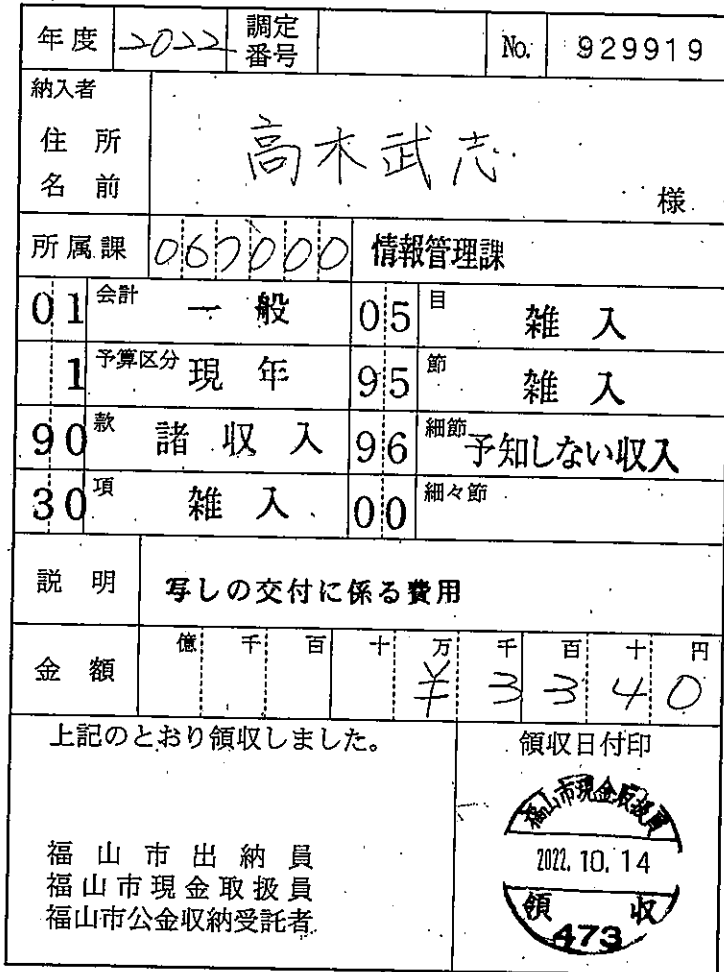 年度 2022 調定番号 No. 929919
納入者
住所
名前
高木武志 様
所属課 067000 情報管理課
01 会計 一般 05 目 雑入
1 予算区分 現年 95 節 雑入
90 款 諸収入 96 細節 予知しない収入
30 項 雑入 00 細々節
説明 写しの交付に係る費用
金額 億 千 百 十 万 千 百 十 円
¥3340
上記のとおり領収しました。
領収日付印
福山市出納員
福山市現金取扱員
福山市公金収納受託者
福山市現金取扱員
2022.10.14
領収
473